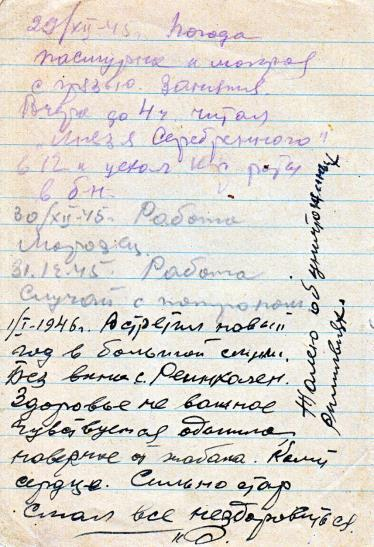 29/XII-45. Погода
пасмурная и мокрая
с грязью. Занятия.
Вчера до 4ч читал
„Князя Серебрянного"
в 12 ч уехал роты
в б-н.
30/XII-45. Работа
31.12-45 Работа
Случай с патроном.
1/I-1946г. Встретил новый
год в большой
Без вина с
Здоровье не важное
Чувствуется одышка,
наверное от табака.
сердце. Сильно стар
стал все нездоровиться.
Жалею об уничтоженных